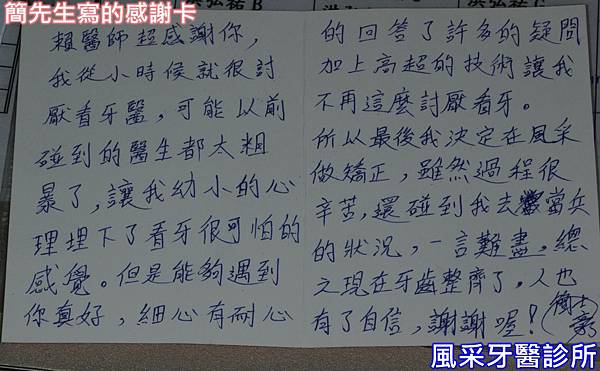 簡先生寫的感謝卡
賴醫師超感謝你，
我從小時候就很討
厭看牙醫，可能以前
碰到的醫生都太粗
暴了，讓我幼小的心
理埋下了看牙很可怕的
感覺。但是能夠遇到
你真好，細心有耐心
的回答了許多的疑問
加上高超的技術讓我
不再這麼討厭看牙。
所以最後我決定在風采
做矯正，雖然過程很
辛苦，還碰到我去當兵
的狀況，一言難盡。總
之現在牙齒整齊了，人也
有了自信，謝謝喔！
風采牙醫診所